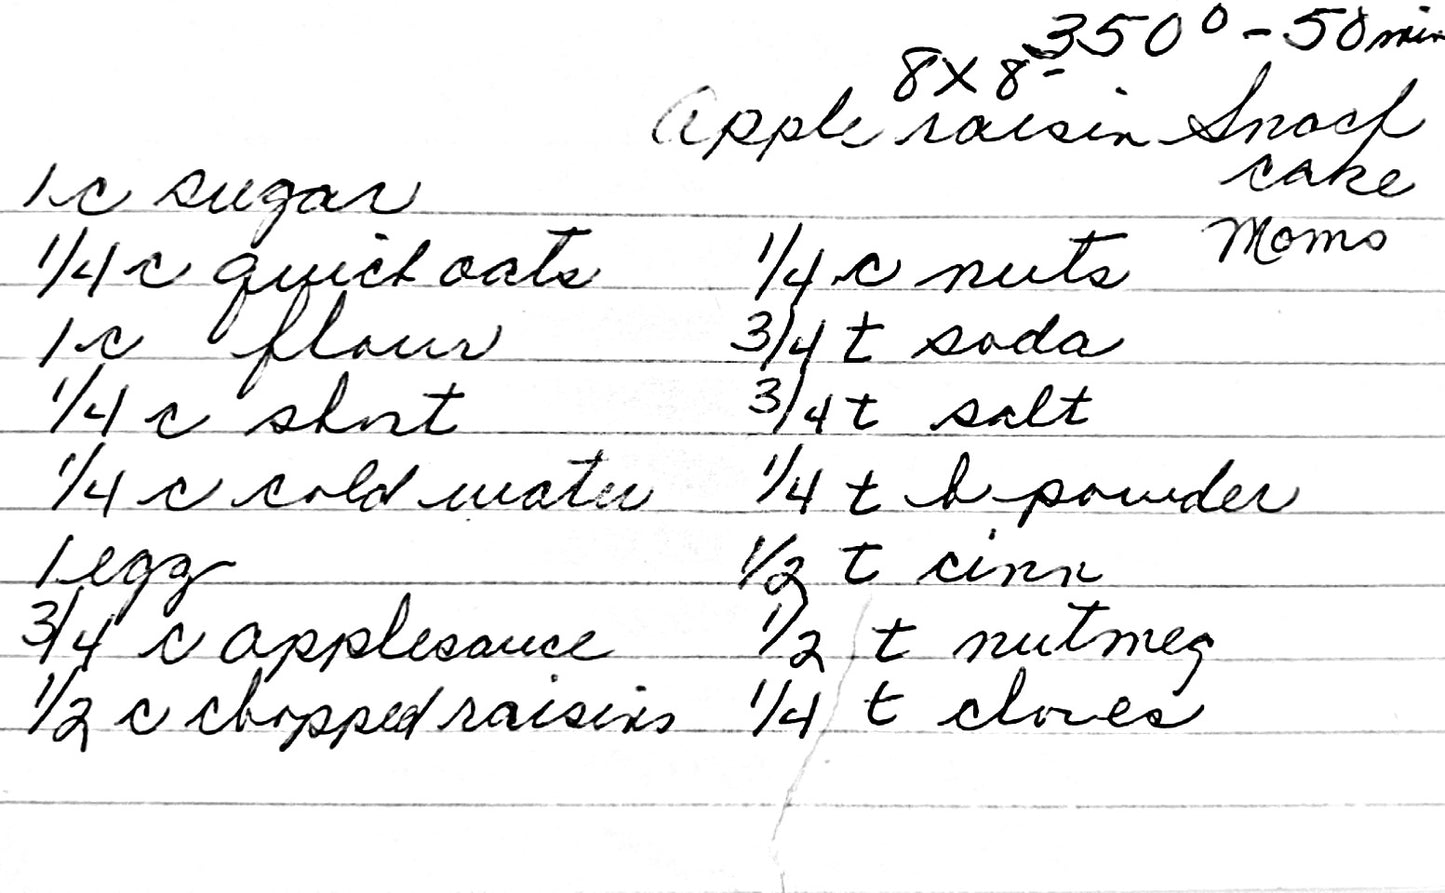 350° - 50 min
8x8 -
Apple raisin Snack
cake
Moms
1 c sugar
1/4 c quick oats
1 c flour
1/4 c short
1/4 c cold water
1 egg
3/4 c applesauce
1/2 c chopped raisins
1/4 c nuts
3/4 t soda
3/4 t salt
1/4 t b powder
1/2 t cinn
1/2 t nutmeg
1/4 t cloves